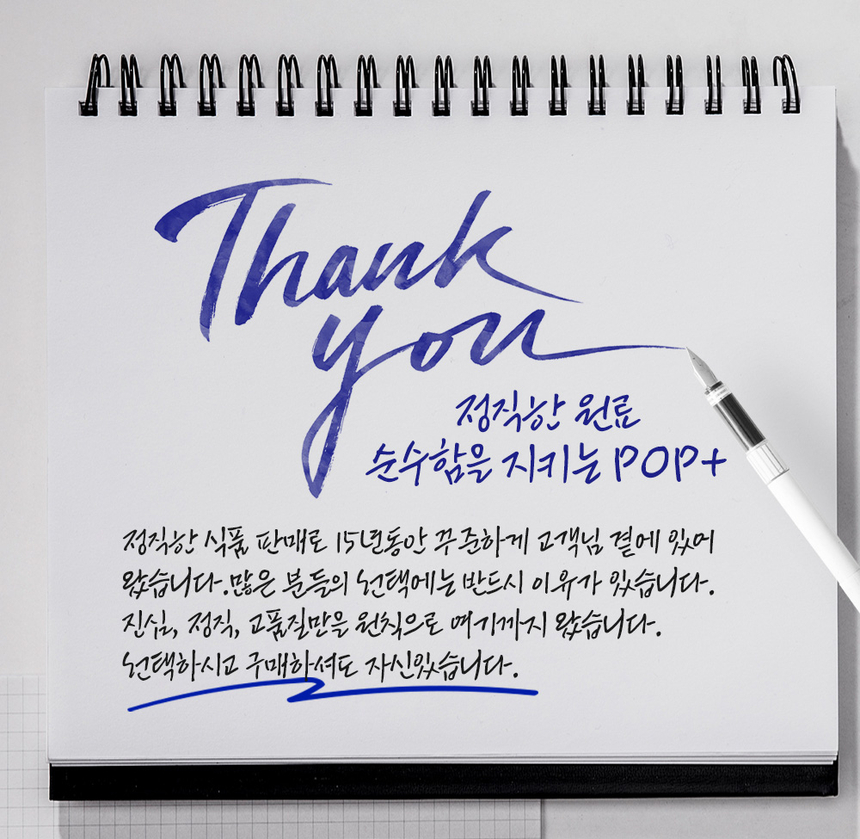 Thank
you
정직한 원료
순수함을 지키는 POP+
정직한 식품 판매로 15년동안 꾸준하게 고객님 곁에 있어
왔습니다.많은 분들의 선택에는 반드시 이유가 있습니다.
진심, 정직, 고품질만은 원칙으로 여기까지 왔습니다.
선택하시고 구매하셔도 자신있습니다.